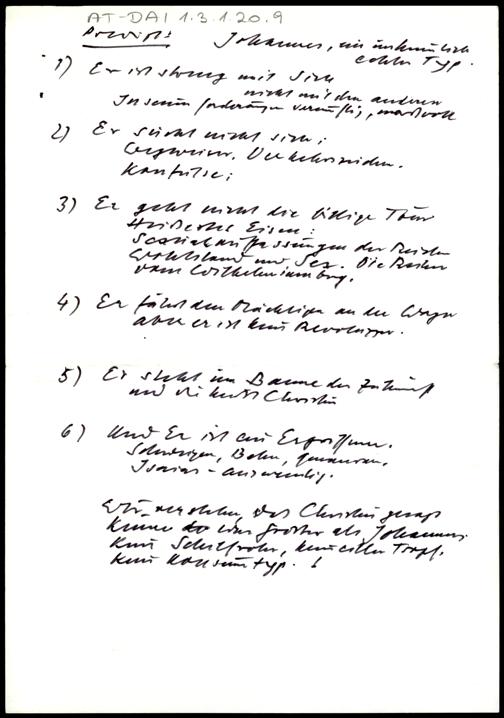 AT-DAI 1.3.1.20.9
Johannes, ein
echter Typ.
1) Er ist streng mit sich
nicht mit den anderen
In seinen Forderungen vernünftig, massvoll
2) Er sucht nicht sich;
Wegweiser. Verkehrszeichen.
3) Er geht nicht die billige Tour
Heißeste Eisen:
Sozialauffassungen der Reichen
Wohlstand und Sex. Die Reichen
vom
4) Er fährt den Mächtigen an den Wagen
aber er ist kein Revoluzzer.
5) Er steht im Banne der Zukunft
und die heißt Christus
6) Und Er ist ein Ergriffener.
Schweigen, Beten,
Isaias - auswendig.
Wir verstehen, dass Christus gesagt
keiner so war größer als Johannes.
Kein Schilfrohr, kein eitler Tropf.
Kein Konsumtyp. !